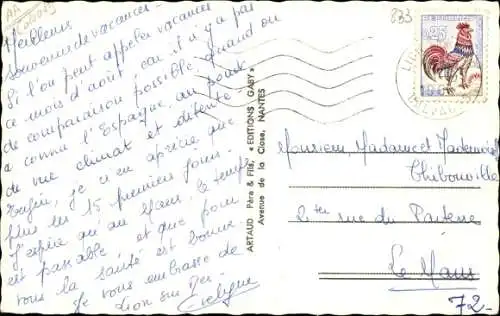 Meilleurs
souvenirs de vacances -
Si l'on peut appeler vacances
ce mois d'août car il n'y a pas
de comparaison possible quand on
a connu l'Espagne, au point
de vue climat et détente
Enfin, je n'en apprécie que
plus les 15 premiers jours.
J'espère qu'au Mans, le temps
est passable et que pour
vous la santé est bonne.
Je vous embrasse de
Lion sur Mer.
Evelyne
ARTAUD Père & Fils, « EDITIONS GABY »
Avenue de la Close, NANTES
833
0,25
Monsieur, Madame et Mademoiselle
Thibouville
2 ter rue du
Le Mans
72-